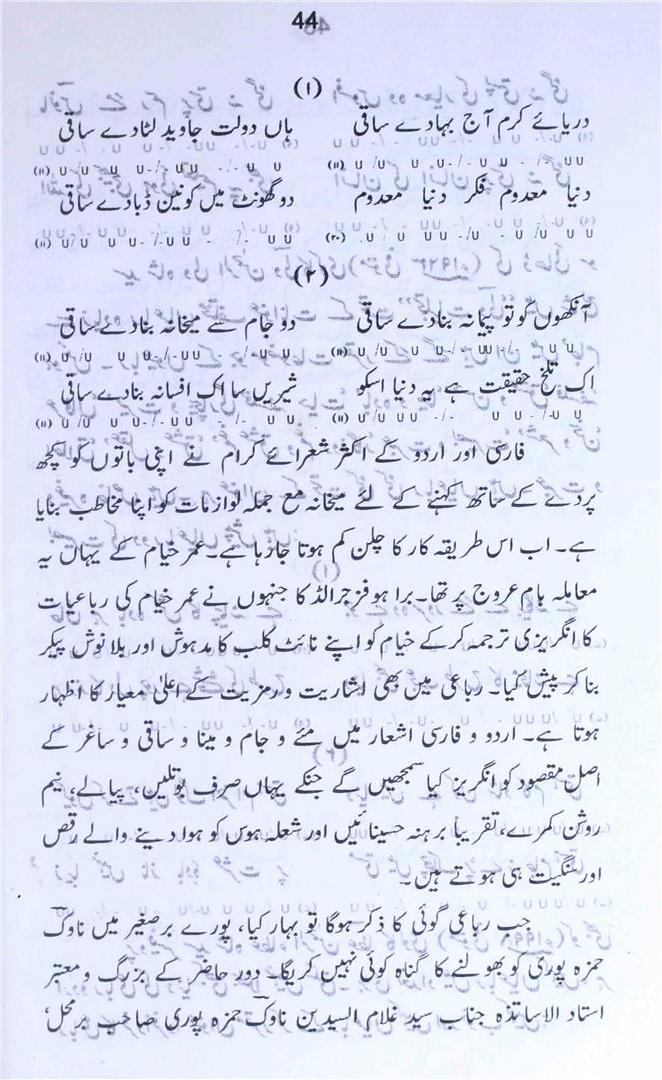 44
(۱)
دریائے کرم آج بہادے ساقی ہاں دولت جاوید لٹادے ساقی
دنیا معدوم فکر دنیا معدوم دو گھونٹ میں کونین ڈبادے ساقی
(۲)
آنکھوں کو تو پیمانہ بنادے ساقی دو جام سے میخانہ بنادے ساقی
اک تلخ حقیقت ہے یہ دنیا اسکو شیریں سا اک افسانہ بنادے ساقی
فارسی اور اردو کے اکثر شعرائے کرام نے اپنی باتوں کو کچھ
پردے کے ساتھ کہنے کے لئے میخانہ مع جملہ لوازمات کو اپنا مخاطب بنایا
ہے۔ اب اس طریقہ کار کا چلن کم ہوتا جارہا ہے۔ عمر خیام کے یہاں یہ
معاملہ بام عروج پر تھا۔ برا ہو فزجرالڈ کا جنہوں نے عمر خیام کی رباعیات
کا انگریزی ترجمہ کر کے خیام کو اپنے نائٹ کلب کا مدہوش اور بلا نوش پیکر
بنا کر پیش کیا۔ رباعی میں بھی اشاریت و رمزیت کے اعلیٰ معیار کا اظہار
ہوتا ہے۔ اردو و فارسی اشعار میں مئے و جام و مینا و ساقی و ساغر کے
اصل مقصود کو انگریز کیا سمجھیں گے جنکے یہاں صرف بوتلیں، پیالے، نیم
روشن کمرے، تقریباً برہنہ حسینائیں اور شعلہ ہوس کو ہوا دینے والے رقص
اور سنگیت ہی ہوتے ہیں۔
جب رباعی گوئی کا ذکر ہوگا تو بہار کیا، پورے برصغیر میں ناوکؔ
حمزہ پوری کو بھولنے کا گناہ کوئی نہیں کریگا۔ دور حاضر کے بزرگ و معتبر
استاد الاساتذہ جناب سید غلام السیدین ناوکؔ حمزہ پوری صاحب برمحل،